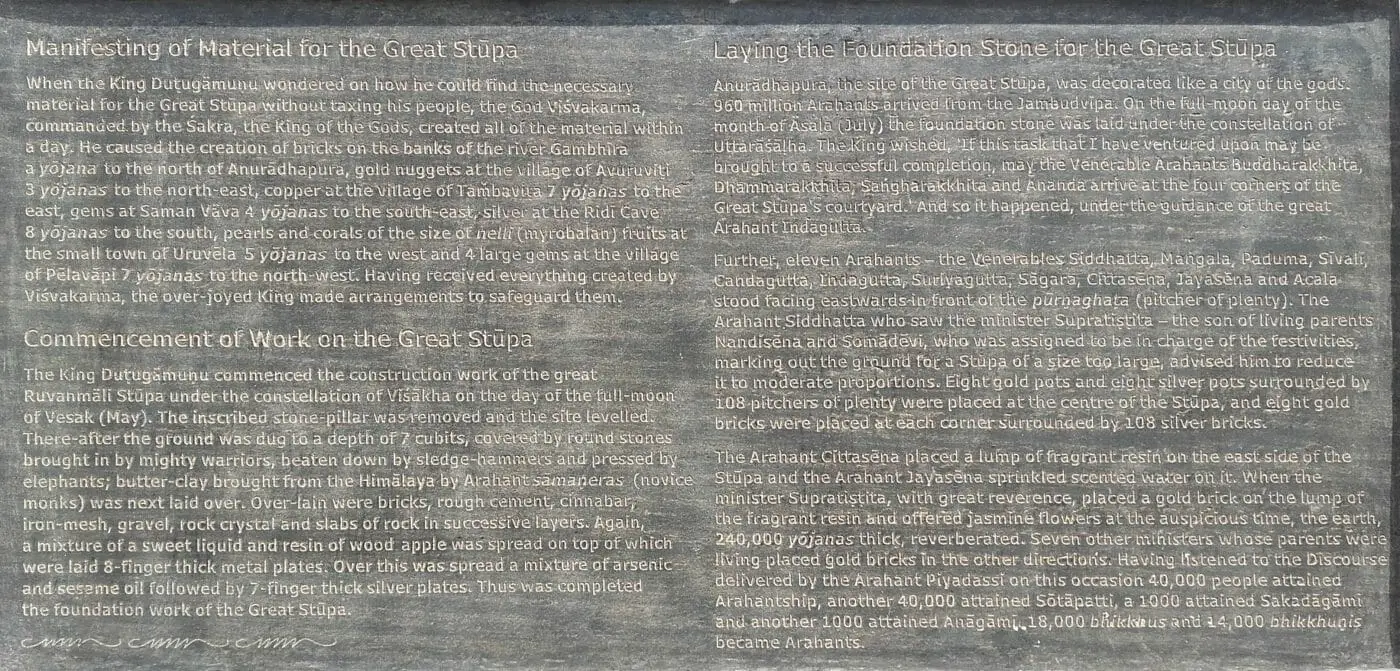 Manifesting of Material for the Great Stūpa
When the King Duṭugämuṇu wondered on how he could find the necessary
material for the Great Stūpa without taxing his people, the God Viśvakarma,
commanded by the Śakra, the King of the Gods, created all of the material within
a day. He caused the creation of bricks on the banks of the river Gambhīra
a yōjana to the north of Anurādhapura, gold nuggets at the village of Avuruviṭi
3 yōjanas to the north-east, copper at the village of Tambaviṭa 7 yōjanas to the
east, gems at Saman Väva 4 yōjanas to the south-east, silver at the Ridī Cave
8 yōjanas to the south, pearls and corals of the size of nelli (myrobalan) fruits at
the small town of Uruvēla 5 yōjanas to the west and 4 large gems at the village
of Pēlavāpi 7 yōjanas to the north-west. Having received everything created by
Viśvakarma, the over-joyed King made arrangements to safeguard them.
Commencement of Work on the Great Stūpa
The King Duṭugämuṇu commenced the construction work of the great
Ruvanmäli Stūpa under the constellation of Viśākha on the day of the full-moon
of Vesak (May). The inscribed stone-pillar was removed and the site levelled.
There-after the ground was dug to a depth of 7 cubits, covered by round stones
brought in by mighty warriors, beaten down by sledge-hammers and pressed by
elephants; butter-clay brought from the Himālaya by Arahant sāmaṇeras (novice
monks) was next laid over. Over-lain were bricks, rough cement, cinnabar,
iron-mesh, gravel, rock crystal and slabs of rock in successive layers. Again,
a mixture of a sweet liquid and resin of wood apple was spread on top of which
were laid 8-finger thick metal plates. Over this was spread a mixture of arsenic
and sesame oil followed by 7-finger thick silver plates. Thus was completed
the foundation work of the Great Stūpa.
Laying the Foundation Stone for the Great Stūpa
Anurādhapura, the site of the Great Stūpa, was decorated like a city of the gods.
960 million Arahants arrived from the Jambudvīpa. On the full-moon day of the
month of Äsala (July) the foundation stone was laid under the constellation of
Uttarāsālha. The King wished, 'If this task that I have ventured upon may be
brought to a successful completion, may the Venerable Arahants Buddharakkhita,
Dhammarakkhita, Saṅgharakkhita and Ānanda arrive at the four corners of the
Great Stūpa's courtyard.' And so it happened, under the guidance of the great
Arahant Indagutta.
Further, eleven Arahants – the Venerables Siddhatta, Maṅgala, Paduma, Sīvali,
Candagutta, Indagutta, Suriyagutta, Sāgara, Cittasēna, Jayasēna and Acala
stood facing eastwards in front of the pūrnaghaṭa (pitcher of plenty). The
Arahant Siddhatta who saw the minister Supratiṣṭita – the son of living parents
Nandisēna and Sōmādēvi, who was assigned to be in charge of the festivities,
marking out the ground for a Stūpa of a size too large, advised him to reduce
it to moderate proportions. Eight gold pots and eight silver pots surrounded by
108 pitchers of plenty were placed at the centre of the Stūpa, and eight gold
bricks were placed at each corner surrounded by 108 silver bricks.
The Arahant Cittasēna placed a lump of fragrant resin on the east side of the
Stūpa and the Arahant Jayasēna sprinkled scented water on it. When the
minister Supratiṣṭita, with great reverence, placed a gold brick on the lump of
the fragrant resin and offered jasmine flowers at the auspicious time, the earth,
240,000 yōjanas thick, reverberated. Seven other ministers whose parents were
living placed gold bricks in the other directions. Having listened to the Discourse
delivered by the Arahant Piyadassi on this occasion 40,000 people attained
Arahantship, another 40,000 attained Sōtāpatti, a 1000 attained Sakadāgāmi
and another 1000 attained Anāgāmi, 18,000 bhikkhus and 14,000 bhikkhuṇīs
became Arahants.